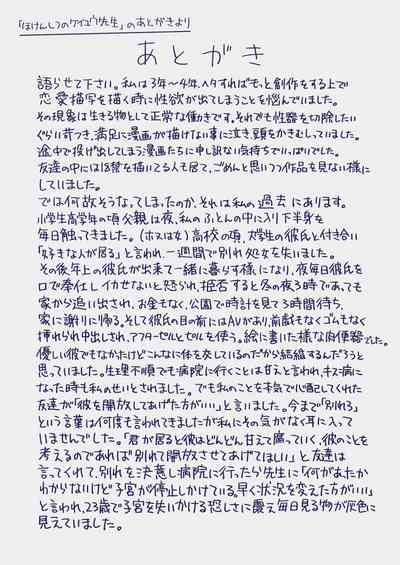 「ほけんしつのケイユウ先生」のあとがきより
あとがき
語らせて下さい。私は3年～4年、ヘタすればもっと創作をする上で
恋愛描写を描く時に性欲が出てしまうことを悩んでいました。
その現象は生き物として正常な働きです。それでも性器を切除したい
ぐらい苛つき、満足に漫画が描けない事に泣き、頭をかきむしっていました。
途中で投げ出してしまう漫画たちに申し訳ない気持ちでいっぱいでした。
友達の中には18禁を描いてる人も居て、ごめんと思いつつ作品を見ない様に
していました。
では何故そうなってしまったのか、それは私の過去にあります。
小学生高学年の頃父親は夜、私のふとんの中に入り下半身を
毎日触ってきました。(ホスは女)高校の頃、大学生の彼氏と付き合い
「好きな人が居る」と言われ、一週間で別れ処女を失いました。
その後年上の彼氏が出来て一緒に暮らす様になり、夜毎日彼氏を
口で奉仕しイカせないと怒られ、拒否すると冬の夜3時であっても
家から追い出され、お金もなく、公園で時計を見て3時間待ち、
家に謝りに帰る。そして彼氏の目の前にはAVがあり、前戯もなくゴムもなく
挿れられ中出しされ、アフターピルとピルを使う。絵に書いた様な肉便器でした。
優しい彼でもなかったけどこんなに体を交しているのだから結婚するんだろうと
思っていました。生理不順でも病院に行くことは甘えと言われ、キス病に
なった時も私のせいとされました。でも私のことを本気で心配してくれた
友達が「彼を開放してあげた方がいい」と言いました。今まで「別れろ」
という言葉は何度も言われてきましたが私にその気がなく耳に入って
いませんでした。「君が居ると彼はどんどん甘えて腐っていく、彼のことを
考えるのであれば別れて開放させてあげてほしい」と友達は
言ってくれて、別れを決意し病院に行ったら先生に「何があったか
わからないけど子宮が停止しかけている。早く状況を変えた方がいい」
と言われ、23歳で子宮を失いかける恐しさに震え毎日見る物が灰色に
見えていました。